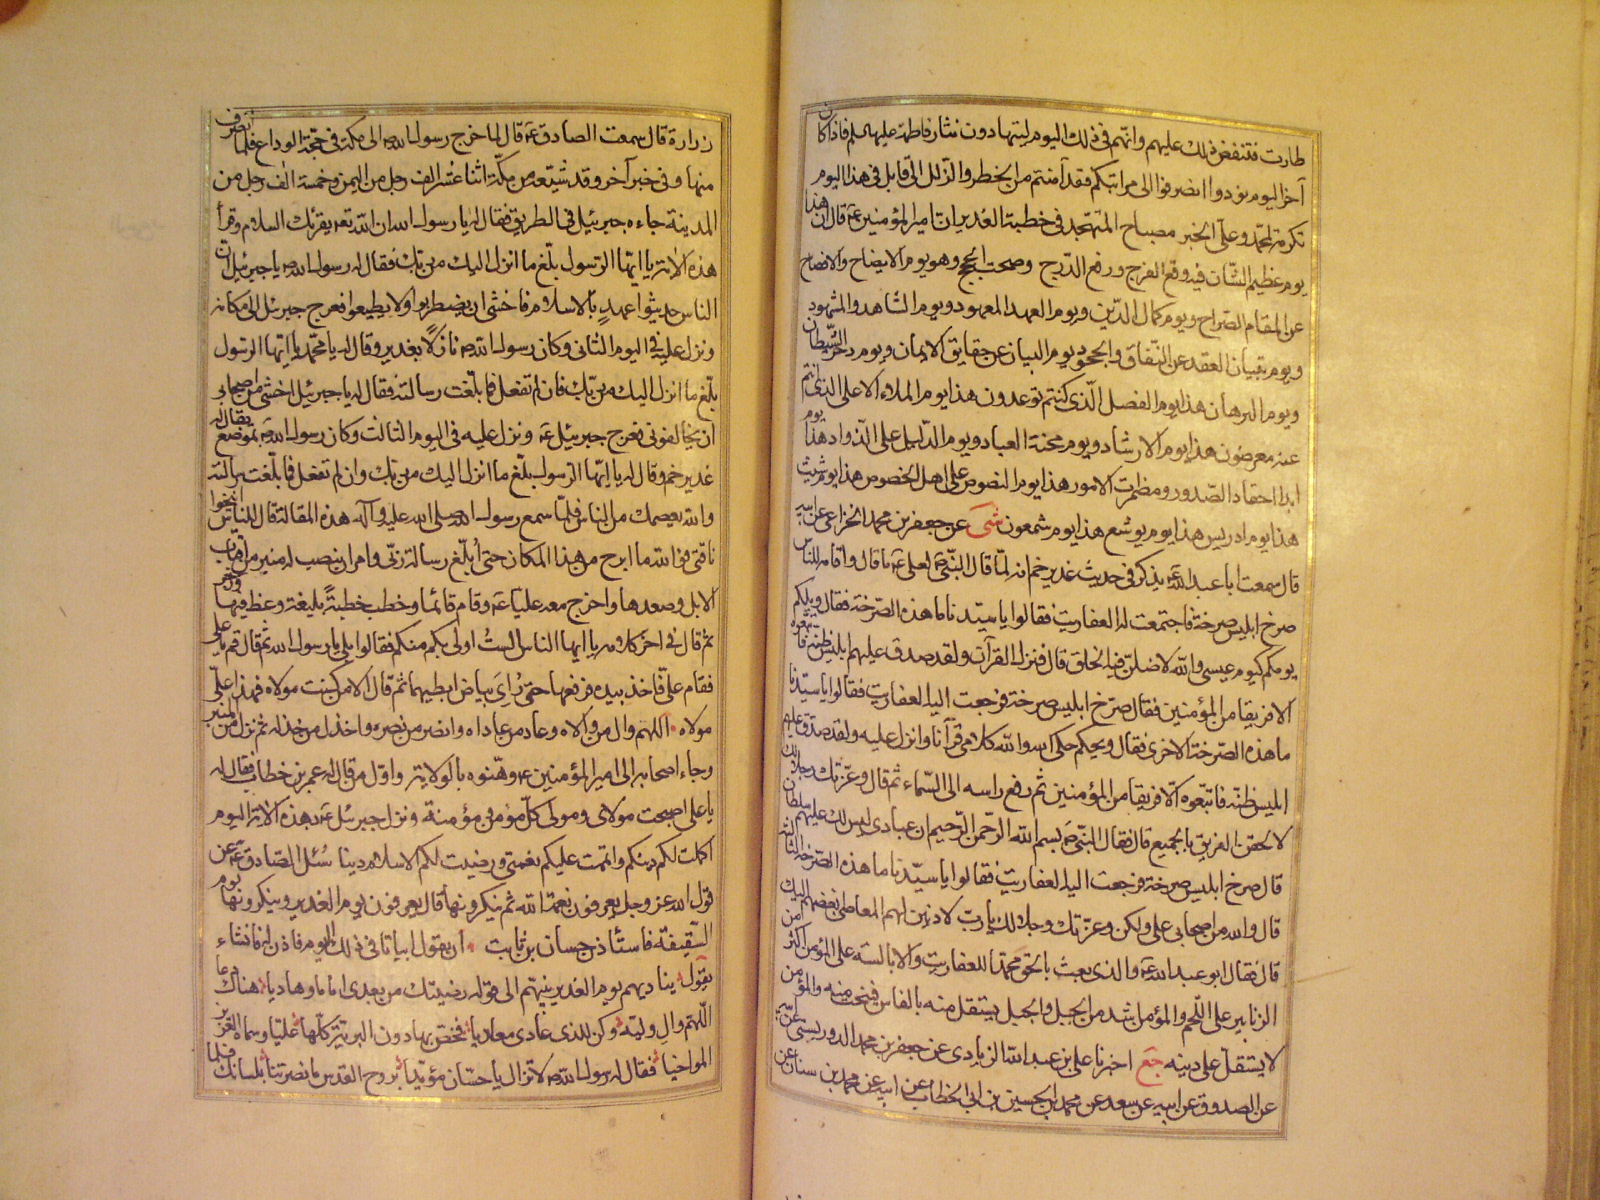 طارت فتنفض ذلك عليهم وانهم فى ذلك اليوم ليتهادون نثار فاطمة عليها السلم فاذا كان
آخر اليوم نودوا انصرفوا الى مراتبكم فقد آمنتم من الخطر والزلل الى قابل فى هذا اليوم
تكرمة لمحمد وعلى الخبر مصباح المتهجد فى خطبة الغدير ان امير المؤمنين ع قال ان هذا
يوم عظيم الشان فيه وقع الفرج ورفع الدرج وصحت الحجج وهو يوم الايضاح والافصاح
عن المقام الصراح ويوم كمال الدين ويوم العهد المعهود ويوم الشاهد والمشهود
ويوم تبيان العقد عن النفاق والجحود ويوم البيان عن حقايق الايمان ويوم دحر الشيطان
ويوم البرهان هذا يوم الفصل الذى كنتم توعدون هذا يوم الملاء الاعلى الذى انتم
عنه معرضون هذا يوم الارشاد ويوم محنة العباد ويوم الدليل على الذواد هذا يوم
ابدا احقاد الصدور ومضمرات الامور هذا يوم النصوص على اهل الخصوص هذا يوم شيث
هذا يوم ادريس هذا يوم يوشع هذا يوم شمعون شى عن جعفر بن محمد الخزاعى عن ابيه
قال سمعت ابا عبد الله ع يذكر فى حديث غدير خم انه لما قال النبى ص لعلى ع ما قال واقامه للناس
صرخ ابليس صرخة فاجتمعت له العفاريت فقالوا يا سيدنا ما هذه الصرخة فقال ويلكم
يومكم كيوم عيسى والله لاضلن فيه الخلق قال فنزل القرآن ولقد صدق عليهم ابليس ظنه فاتبعوه
الا فريقا من المؤمنين فقال صرخ ابليس صرخة فرجعت اليه العفاريت فقالوا يا سيدنا
ما هذه الصرخة الاخرى فقال ويحكم حكى الله والله كلامى قرآنا وانزل عليه ولقد صدق عليهم
ابليس ظنه فاتبعوه الا فريقا من المؤمنين ثم رفع راسه الى السماء ثم قال وعزتك وجلالك
لالحقن الفريق بالجميع قال فقال النبى ص بسم الله الرحمن الرحيم ان عبادى ليس لك عليهم سلطان
قال صرخ ابليس صرخة فرجعت اليه العفاريت فقالوا يا سيدنا ما هذه الصرخة الثالثة
قال والله من اصحابى على ولكن وعزتك وجلالك يا رب لازينن لهم المعاصى حتى ابغضهم اليك
قال فقال ابو عبد الله ع والذى بعث بالحق محمدا للعفاريت والابالسة على المؤمن اكثر من
الزنابير على اللحم والمؤمن اشد من الجبل والجبل يستقل منه بالفاس فينحت منه والمؤمن
لا يستقل على دينه جع اخبرنا على بن عبد الله الزيادى عن جعفر بن محمد الدوريستى عن ابيه
عن الصدوق عن ابيه عن سعد عن محمد بن الحسين بن ابى الخطاب عن ابيه عن محمد بن سنان عن
زرارة قال سمعت الصادق ع قال لما خرج رسول الله ص الى مكة فى حجة الوداع فلما انصرف
منها وفى خبر آخر وقد شيعه من مكة اثنا عشر الف رجل من اليمن وخمسة الف رجل من
المدينة جاءه جبرئيل فى الطريق فقال له يا رسول الله ان الله تع يقرئك السلام وقرأ
هذه الاية يا ايها الرسول بلغ ما انزل اليك من ربك فقال له رسول الله ص يا جبرئيل ان
الناس حديثوا عهد بالاسلام فاخشى ان يضطربوا ولا يطيعوا فعرج جبرئيل الى مكانه
ونزل عليه فى اليوم الثانى وكان رسول الله ص نازلا بغدير وقال له يا محمد يا ايها الرسول
بلغ ما انزل اليك من ربك فان لم تفعل فما بلغت رسالته فقال له يا جبرئيل اخشى من اصحابى
ان يخالفونى فعرج جبرئيل ع ونزل عليه فى اليوم الثالث وكان رسول الله ص بموضع يقال له
غدير خم وقال له يا ايها الرسول بلغ ما انزل اليك من ربك وان لم تفعل فما بلغت رسالته
والله يعصمك من الناس فلما سمع رسول الله صلى الله عليه وآله هذه المقالة قال للناس انيخوا
ناقتى فوالله ما ابرح من هذا المكان حتى ابلغ رسالة ربى وامر ان ينصب له منبر من اقتاب
الابل وصعدها واخرج معه عليا ع وقام قائما وخطب خطبة بليغة وعظ فيها وزجر
ثم قال فى اخر كلامه يا ايها الناس الست اولى بكم منكم فقالوا بلى يا رسول الله ثم قال قم يا على
فقام على فاخذ بيده فرفعها حتى رأى بياض ابطيهما ثم قال الا من كنت مولاه فهذا على
مولاه اللهم وال من والاه وعاد من عاداه وانصر من نصره واخذل من خذله ثم نزل من المنبر
وجاء اصحابه الى امير المؤمنين ع وهنوه بالولاية واول من قال له عمر بن خطاب فقال له
يا على اصبحت مولاى ومولى كل مؤمن ومؤمنة ونزل جبرئيل ع بهذه الاية اليوم
اكملت لكم دينكم واتممت عليكم نعمتى ورضيت لكم الاسلام دينا سئل الصادق ع عن
قول الله عز وجل يعرفون نعمة الله ثم ينكرونها قال يعرفون يوم الغدير وينكرونها يوم
السقيفة فاستأذن حسان بن ثابت ان يقول ابياتا فى ذلك اليوم فاذن له فانشاء
يقول يناديهم يوم الغدير نبيهم الى قوله رضيتك من بعدى اماما وهاديا هناك دعا
اللهم وال وليه وكن للذى عادى معاديا فخص بها دون البرية كلها عليا وسماه العزيز
المواخيا فقال له رسول الله ص لا تزال يا حسان مؤيدا بروح القدس ما نصرتنا بلسانك فلما